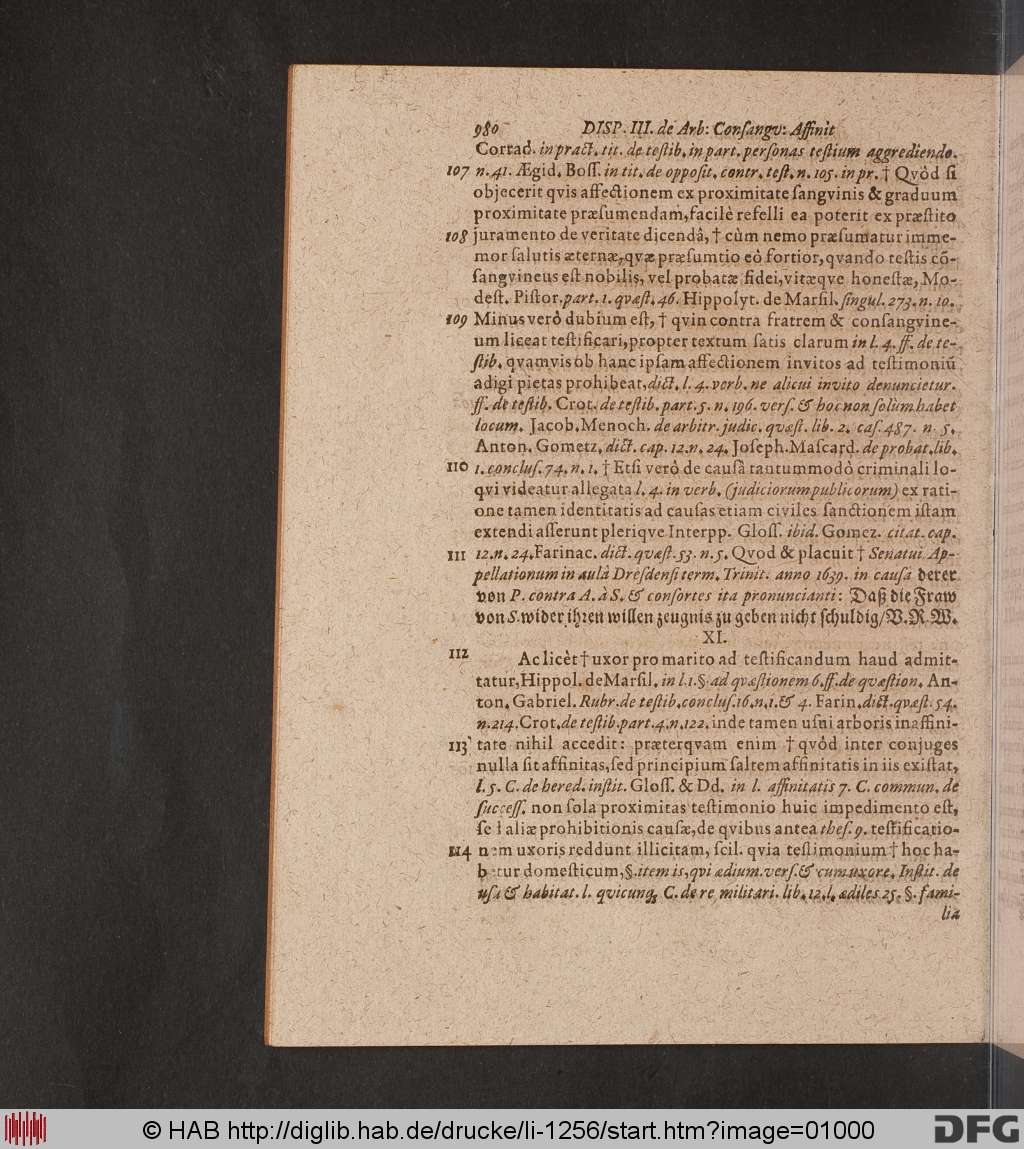 980 DISP. III. de Arb: Conſangv: Affinit
Corrad. in pract. tit. de teſtib. in part. perſonas teſtium aggrediendo.
107 n. 41. Ægid. Boſſ. in tit. de oppoſit. contr. teſt. n. 105. in pr. † Qvòd ſi
objecerit qvis affectionem ex proximitate ſangvinis & graduum
proximitate præſumendam, facilè refelli ea poterit ex præſtito
108 juramento de veritate dicendâ, † cùm nemo præſumatur imme-
mor ſalutis æternæ, qvæ præſumtio eò fortior, qvando teſtis cō-
ſangvineus eſt nobilis, vel probatæ fidei, vitæqve honeſtæ, Mo-
deſt. Piſtor. part. 1. qvæſt. 46. Hippolyt. de Marſil. ſingul. 273. n. 10.
109 Minus verò dubium eſt, † qvin contra fratrem & conſangvine-
um liceat teſtificari, propter textum ſatis clarum in l. 4. ff. de te-
ſtib. qvamvis ob hanc ipſam affectionem invitos ad teſtimoniū
adigi pietas prohibeat, dict. l. 4. verb. ne alicui invito denuncietur.
ff. de teſtib. Crot. de teſtib. part. 5. n. 196. verſ. & hoc non ſolùm habet
locum. Jacob. Menoch. de arbitr. judic. qvæſt. lib. 2. caſ. 487. n. 5.
Anton. Gometz. dict. cap. 12. n. 24. Joſeph. Maſcard. de probat. lib.
110 1. concluſ. 74. n. 1. † Etſi verò de causâ tantummodò criminali lo-
qvi videatur allegata l. 4. in verb. (judiciorum publicorum) ex rati-
one tamen identitatis ad cauſas etiam civiles ſanctionem iſtam
extendi aſſerunt pleriqve Interpp. Gloſſ. ibid. Gomez. citat. cap.
111 12. n. 24. Farinac. dict. qvæſt. 53. n. 5. Qvod & placuit † Senatui Ap-
pellationum in aulâ Dreſdenſi term. Trinit. anno 1639. in causâ derer
von P. contra A. à S. & conſortes ita pronuncianti: Daß die Fraw
von S. wider ihren willen zeugnis zu geben nicht ſchuldig/ V. R. W.
XI.
112 Ac licèt † uxor pro marito ad teſtificandum haud admit-
tatur, Hippol. de Marſil. in l. 1. § ad qvæſtionem 6. ff. de qvæſtion. An-
ton. Gabriel. Rubr. de teſtib. concluſ. 16. n. 1. & 4. Farin. dict. qvæſt. 54.
n. 214. Crot. de teſtib. part. 4. n. 122. inde tamen uſui arboris in affini-
113 tate nihil accedit: præterqvam enim † qvòd inter conjuges
nulla ſit affinitas, ſed principium ſaltem affinitatis in iis exiſtat,
l. 5. C. de hered. inſtit. Gloſſ. & Dd. in l. affinitatis 7. C. commun. de
ſucceſſ. non ſola proximitas teſtimonio huic impedimento eſt,
ſed aliæ prohibitionis cauſæ, de qvibus antea theſ. 9. teſtificatio-
114 nem uxoris reddunt illicitam, ſcil. qvia teſtimonium † hoc ha-
betur domeſticum, §. item is, qvi ædium. verſ. & cum uxore. Inſtit. de
uſu & habitat. l. qvicunq; C. de re militari. lib. 12. l. ædiles 25. §. fami-
lia
© HAB http://diglib.hab.de/drucke/li-1256/start.htm?image=01000
DFG